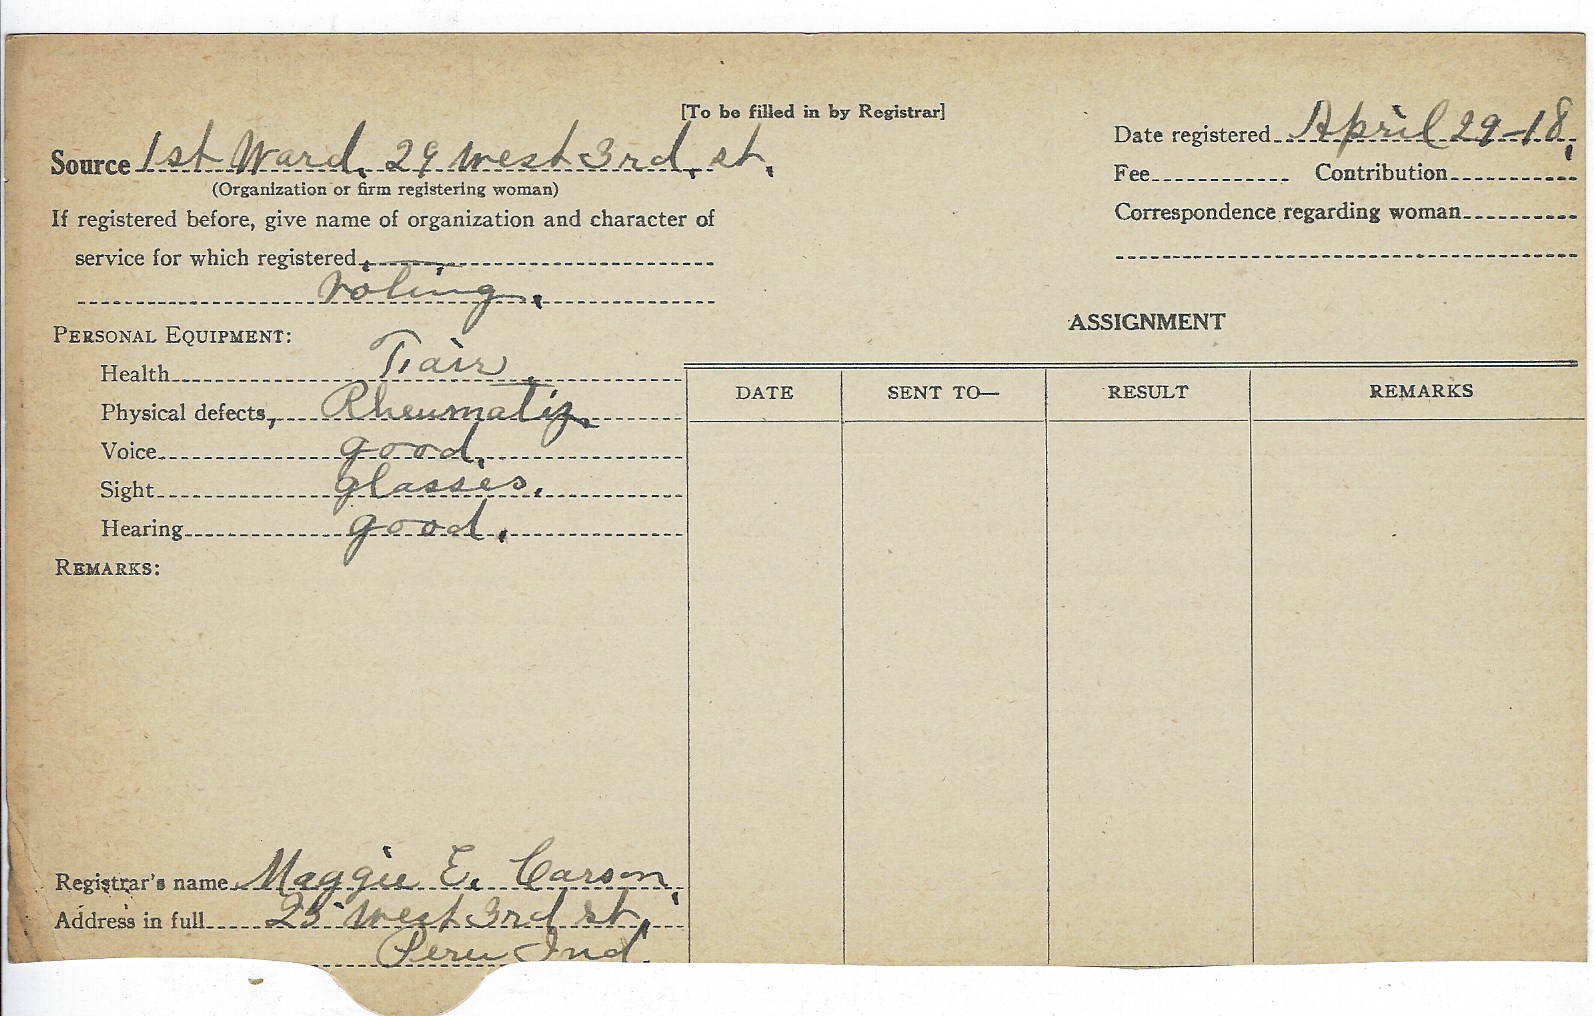 [To be filled in by Registrar]
Source 1st Ward, 29 west 3rd, st,
(Organization or firm registering woman)
If registered before, give name of organization and character of
service for which registered
Voting.
Date registered April 29-18,
Fee Contribution
Correspondence regarding woman
PERSONAL EQUIPMENT:
Health Fair,
Physical defects, Rheumatiz
Voice good.
Sight glasses.
Hearing good.
REMARKS:
ASSIGNMENT
DATE SENT TO— RESULT REMARKS
Registrar's name Maggie E. Carson,
Address in full 25 west 3rd st,
Peru Ind.